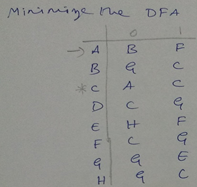 Minimize the DFA
0 1
→ A B F
B G C
* C A C
D C G
E H F
F C G
G G E
H G C